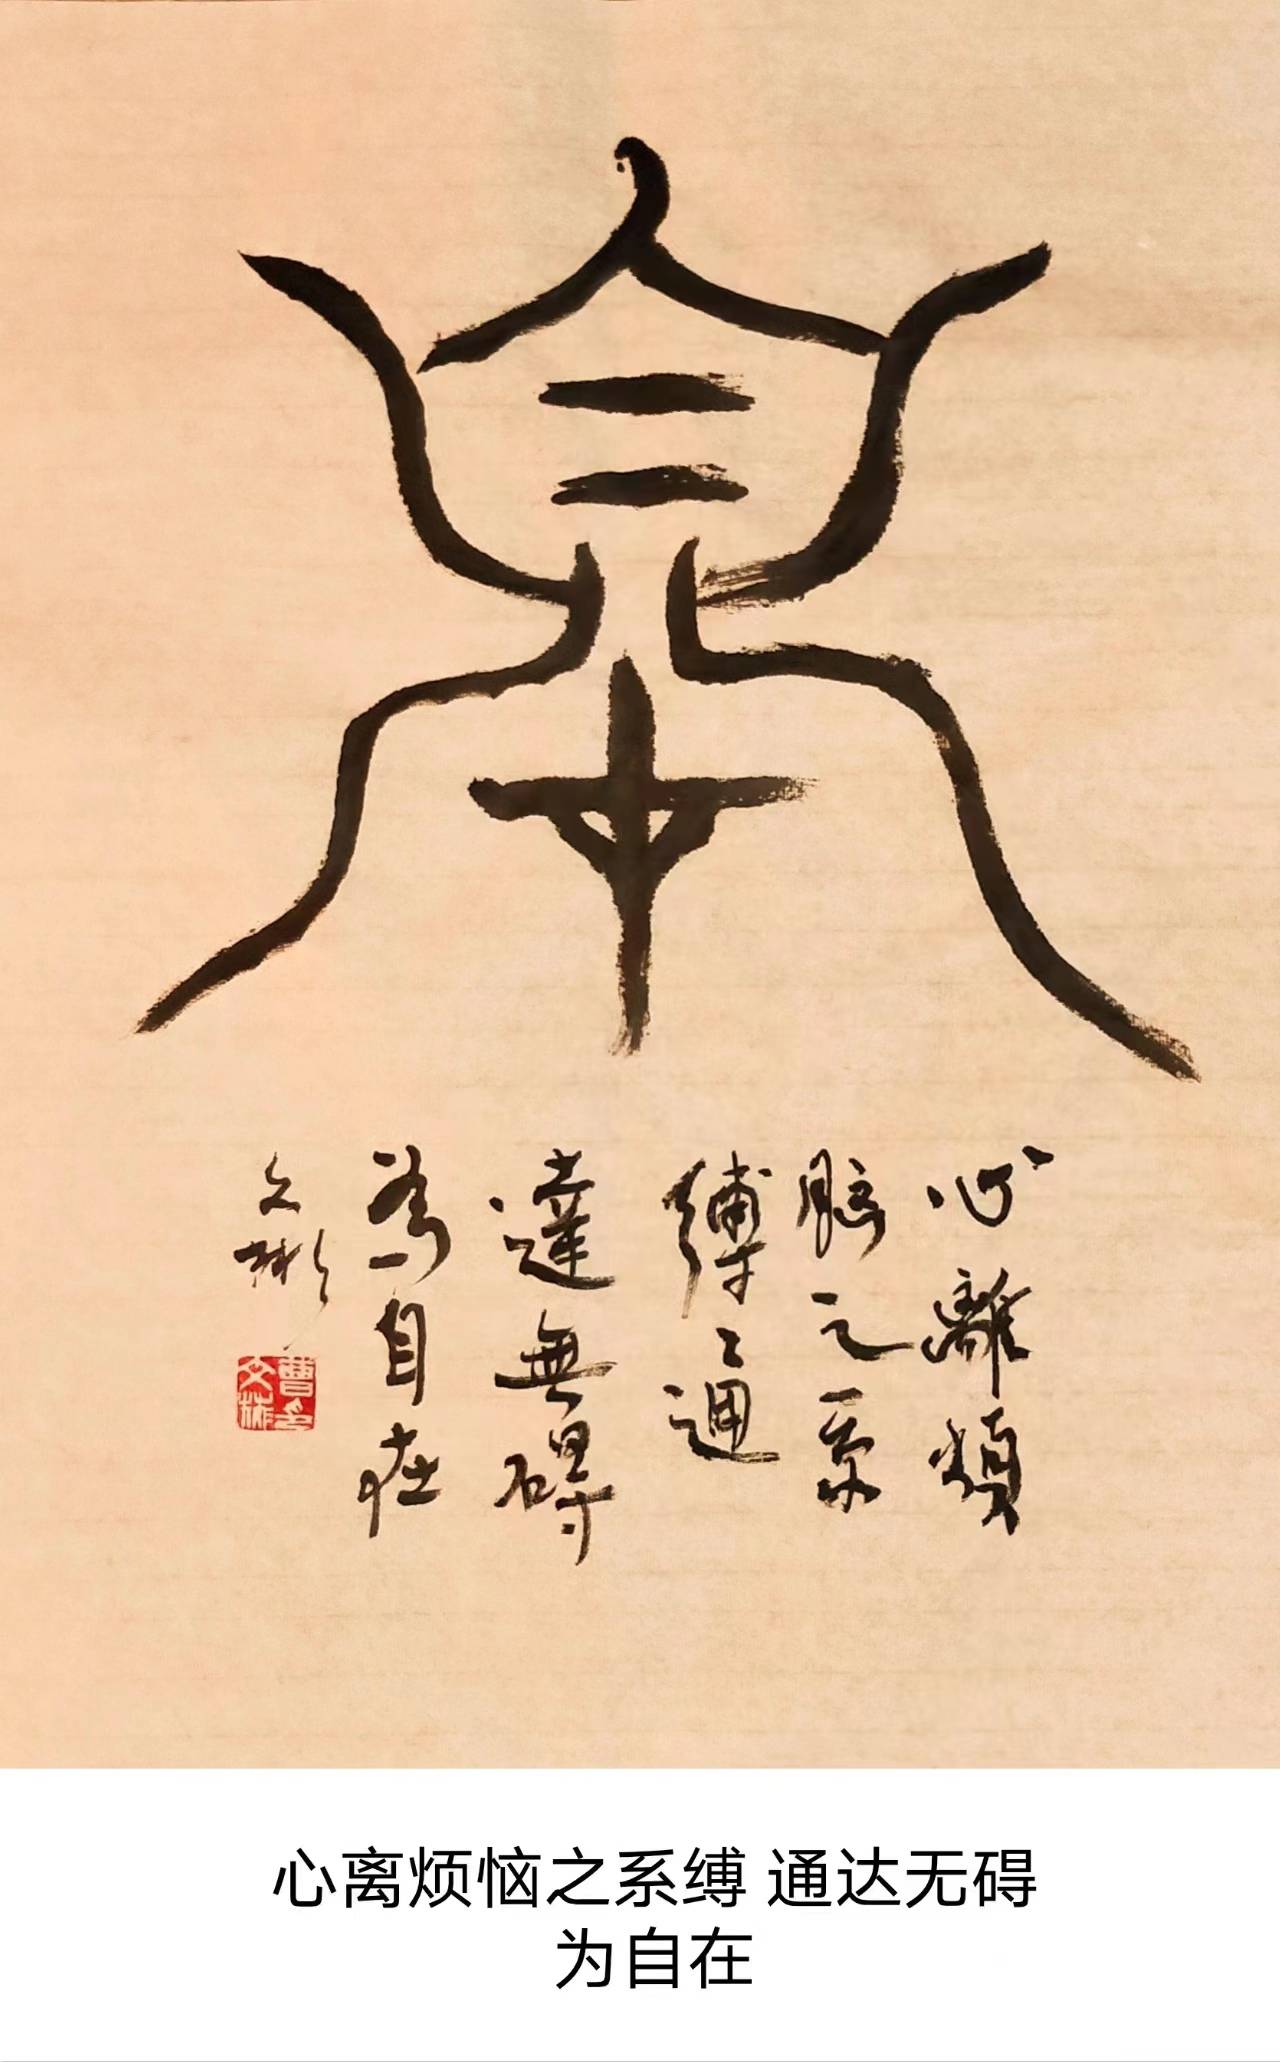 自在
心離煩
惱之系
縛〻通
達無碍
為自在
文彬
曹文彬印
心离烦恼之系缚 通达无碍
为自在